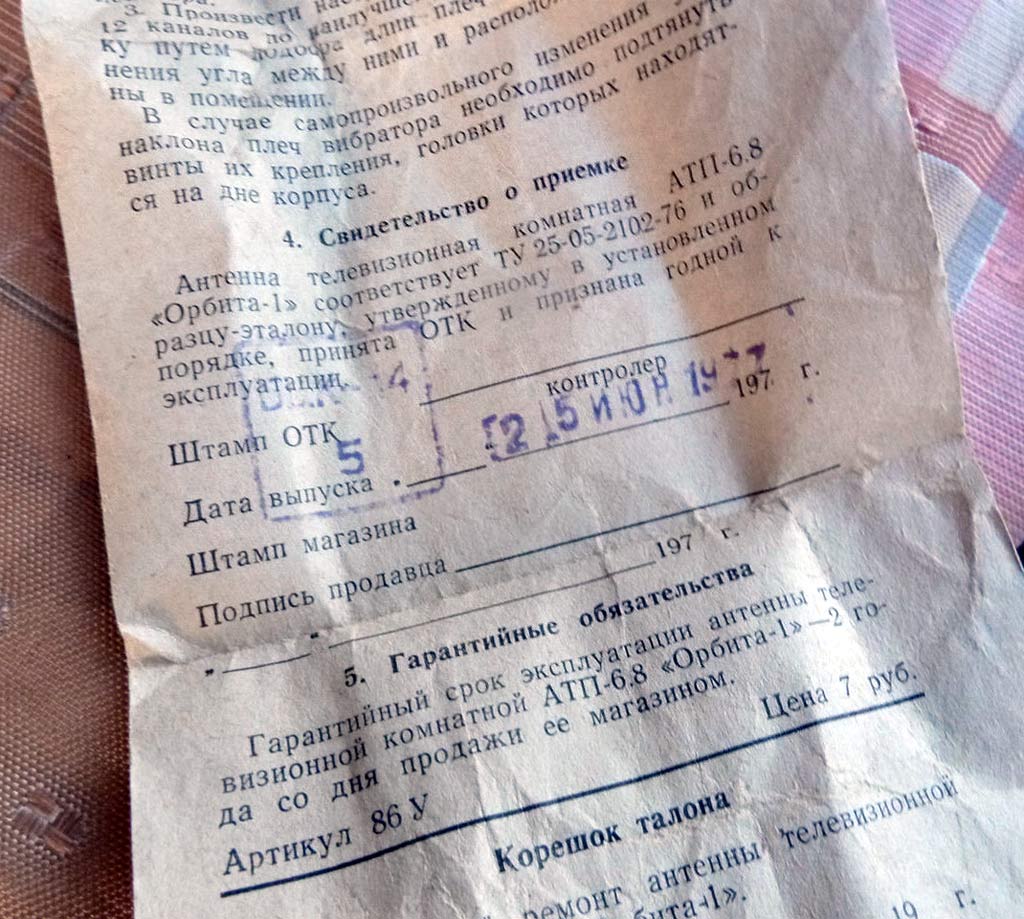 3. Произвести
12 каналов по наилучше
ку путем подбора длин плеч
нения угла между ними и располо
ны в помещении.
В случае самопроизвольного изменения у
наклона плеч вибратора необходимо подтянуть
винты их крепления, головки которых находят-
ся на дне корпуса.
4. Свидетельство о приемке
Антенна телевизионная комнатная АТП-6.8
«Орбита-1» соответствует ТУ 25-05-2102-76 и об-
разцу-эталону, утвержденному в установленном
порядке, принята ОТК и признана годной к
эксплуатации.
контролер
Штамп ОТК
5
25 ИЮН 1977
197 г.
Дата выпуска
Штамп магазина
Подпись продавца
197 г.
5. Гарантийные обязательства
Гарантийный срок эксплуатации антенны теле-
визионной комнатной АТП-6.8 «Орбита-1» —2 го-
да со дня продажи ее магазином.
Артикул 86 У Цена 7 руб.
Корешок талона
ремонт антенны телевизионной
бита-1».
19 г.